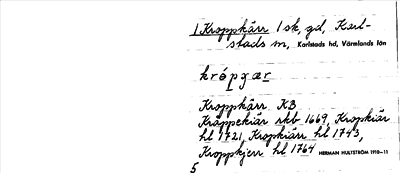 1 Kroppkärr 1 sk, gd, Karl-
stads sn, Karlstads hd, Värmlands län
Kroppkärr KB
Kråppekiär rkb 1669, Kropkiär
hl 1721, Kropkiärr hl 1743,
Kroppkjerr hl 1764 HERMAN HULTSTRÖM 1910–11
5